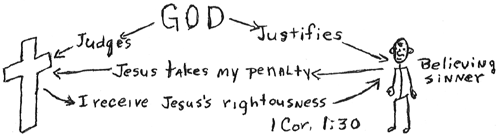 GOD
Judges
Justifies
Jesus takes my penalty
Believing
sinner
I receive Jesus's rightousness
1 Cor. 1:30